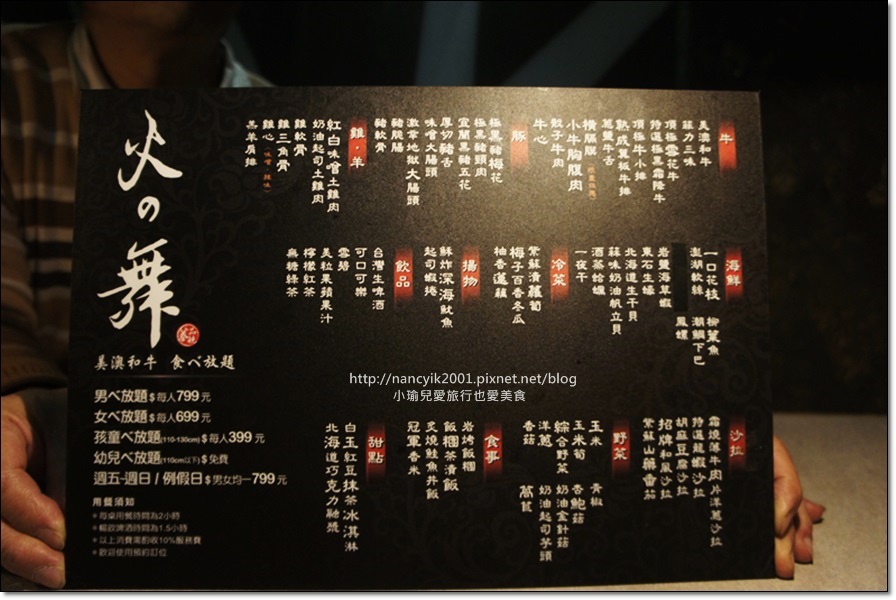 火の舞
美澳和牛 食べ放題
男べ放題$每人799元
女べ放題$每人699元
孩童べ放題(110-130cm)$每人399元
幼兒べ放題(110cm以下)$免費
週五-週日/例假日$男女均一799元
用餐須知
每桌用餐時間為2小時
暢飲啤酒時間為1.5小時
以上消費需酌收10%服務費
歡迎使用預約訂位
牛
美澳和牛
菲力三味
頂極雪花牛
特選極黑霜降牛
頂極牛小排
熟成翼板牛排
蔥鹽牛舌
橫膈膜
小牛胸腹肉
骰子牛肉
牛心
豚
極黑豬梅花
極黑豬頭肉
宜蘭黑豬五花
厚切豬舌
味噌大腸頭
激辛地獄大腸頭
豬脆腸
豬軟骨
雞・羊
紅白味噌土雞肉
奶油起司土雞肉
雞軟骨
雞三角骨
雞心
羔羊肩排
海鮮
一口花枝
柳葉魚
澎湖軟絲
潮鯛下巴
鳳螺
岩鹽海草蝦
東石生蠔
北海道生干貝
蒜味奶油帆立貝
酒蒸蛤蠣
一夜干
冷菜
紫蘇漬蘿蔔
梅子百香冬瓜
柚香蓮藕
揚物
酥炸深海魷魚
起司蝦捲
飲品
台灣生啤酒
可口可樂
雪碧
美粒果蘋果汁
檸檬紅茶
無糖綠茶
沙拉
霜燒薄牛肉片洋蔥沙拉
特選龍蝦沙拉
胡麻豆腐沙拉
招牌和風沙拉
紫蘇山藥番茄
野菜
玉米
青椒
玉米筍
杏鮑菇
綜合野菜
奶油金針菇
洋蔥
奶油起司芋頭
香菇
萵苣
食事
岩烤飯糰
飯糰茶漬飯
炙燒鮭魚丼飯
冠軍香米
甜點
白玉紅豆抹茶冰淇淋
北海道巧克力融漿
http://nancyik2001.pixnet.net/blog
小瑜兒愛旅行也愛美食